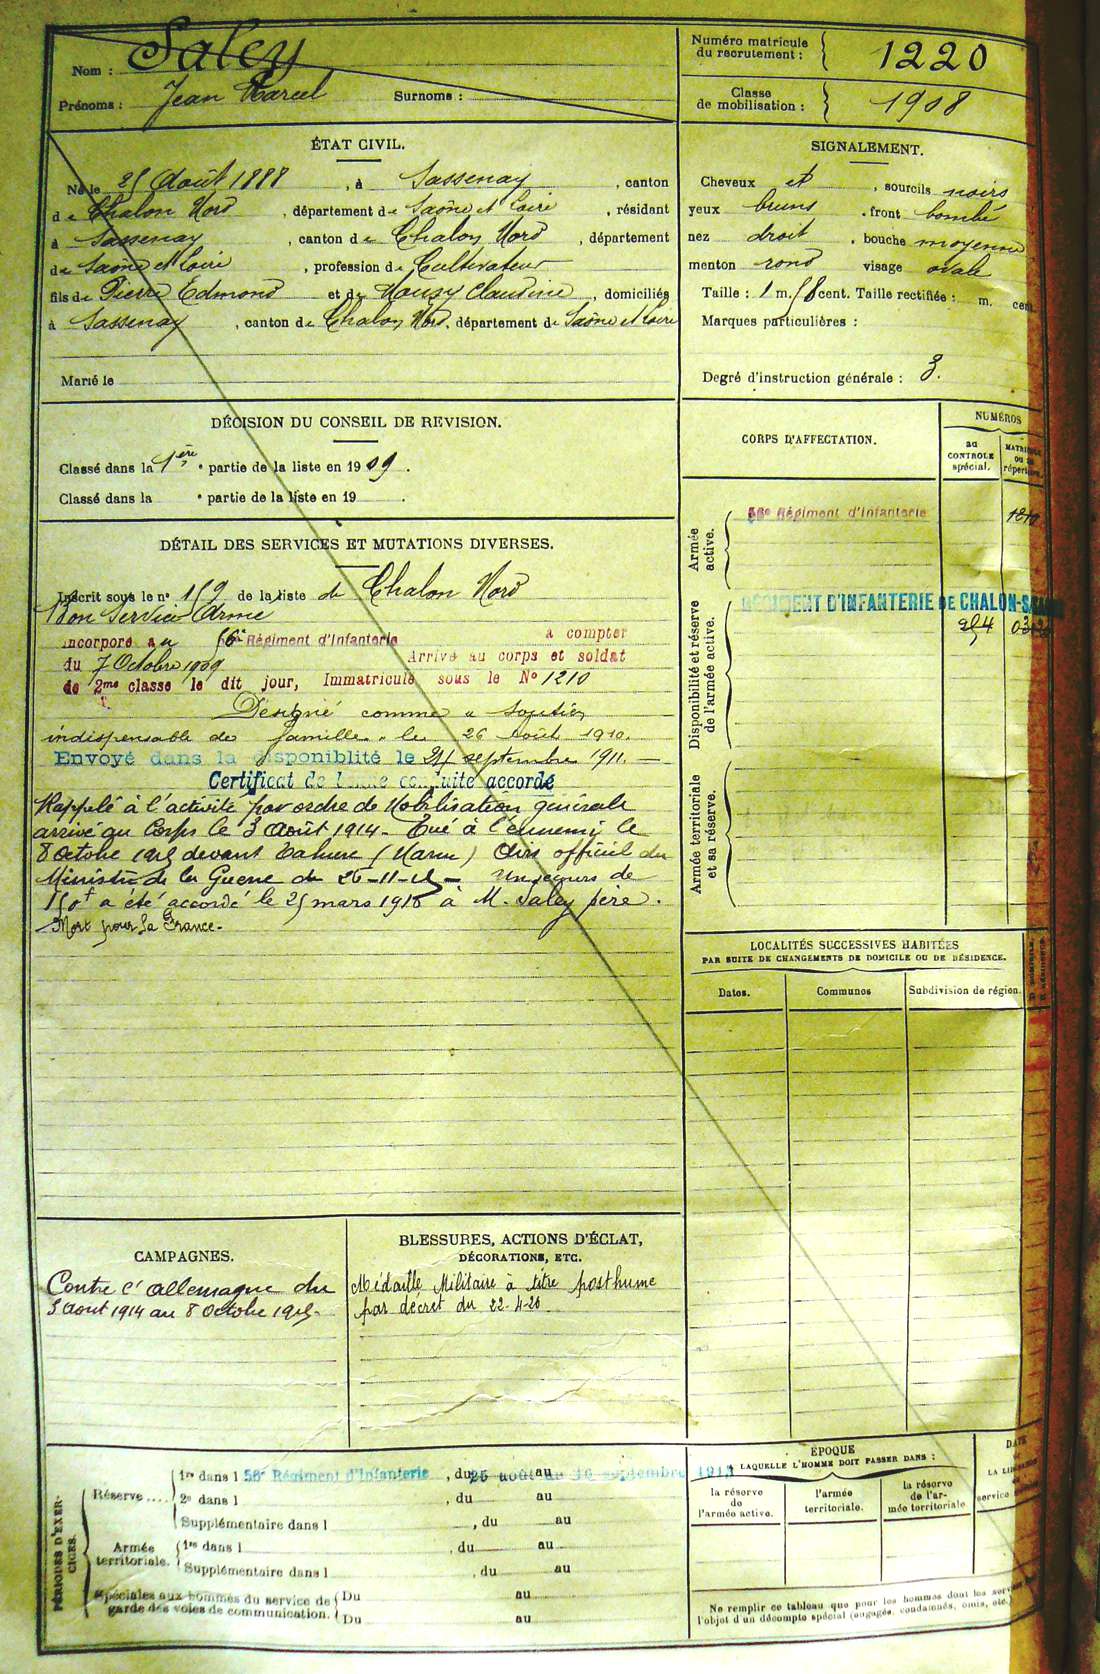 Nom : Saley
Prénoms : Jean Marcel Surnoms :
Numéro matricule
du recrutement : 1220
Classe
de mobilisation : 1908
ÉTAT CIVIL.
Né le 25 Août 1888, à Sassenay, canton
de Chalon Nord, département de Saône et Loire, résidant
à Sassenay, canton de Chalon Nord, département
de Saône et Loire, profession de Cultivateur
fils de Pierre Edmond et de Mousy Claudine, domiciliés
à Sassenay, canton de Chalon Nord, département de Saône et Loire
Marié le
SIGNALEMENT.
Cheveux et, sourcils noirs
yeux bruns, front bombé
nez droit, bouche moyenne
menton rond visage ovale
Taille : 1 m. 58 cent. Taille rectifiée : m. cent.
Marques particulières :
Degré d'instruction générale : 3.
DÉCISION DU CONSEIL DE REVISION.
Classé dans la 1ère partie de la liste en 1909.
Classé dans la e partie de la liste en 19 .
CORPS D'AFFECTATION.
NUMÉROS
au
CONTROLE
spécial.
Armée
active.
56e Régiment d'Infanterie 1210
Disponibilité et réserve
de l'armée active.
RÉGIMENT D'INFANTERIE DE CHALON-S
Armée territoriale
et sa réserve.
DÉTAIL DES SERVICES ET MUTATIONS DIVERSES.
Inscrit sous le no 159 de la liste de Chalon Nord
Bon Service Armé
Incorporé au 56e Régiment d'Infanterie à compter
du 7 Octobre 1909 Arrivé au corps et soldat
de 2me classe le dit jour, Immatriculé sous le No 1210
Désigné comme « soutien
indispensable de famille » le 26 Août 1910.
Envoyé dans la disponiblité le 24 septembre 1911. —
Certificat de bonne conduite accordé
Rappelé à l'activité par ordre de Mobilisation générale
arrivé au Corps le 3 Août 1914 - Tué à l'ennemi le
8 Octobre 1915 devant Tahure (Marne) Avis officiel du
Ministère de la Guerre du 26-11-15 - Un secours de
150f a été accordé le 25 mars 1916 à M. Saley père.
Mort pour la France.
LOCALITÉS SUCCESSIVES HABITÉES
PAR SUITE DE CHANGEMENTS DE DOMICILE OU DE RÉSIDENCE.
Dates. Communes Subdivision de région.
CAMPAGNES.
Contre l'Allemagne du
3 Août 1914 au 8 Octobre 1915.
BLESSURES, ACTIONS D'ÉCLAT,
DÉCORATIONS, ETC.
Médaille Militaire à titre posthume
par décret du 22-4-20.
PÉRIODES D'EXER-
CICES.
Réserve .... 1re dans l 56e Régiment d'Infanterie, du 25 août au 10 septembre 1913
2e dans l , du au
Supplémentaire dans l , du au
Armée
territoriale. 1re dans l , du au
Supplémentaire dans l , du au
Spéciales aux hommes du service de
garde des voies de communication. Du au
Du au
ÉPOQUE
A LAQUELLE L'HOMME DOIT PASSER DANS :
la réserve
de
l'armée active.
l'armée
territoriale.
la réserve
de l'ar-
mée territoriale
DATE
Ne remplir ce tableau que pour les hommes dont les services
l'objet d'un décompte spécial (engagés, condamnés, omis, etc.)